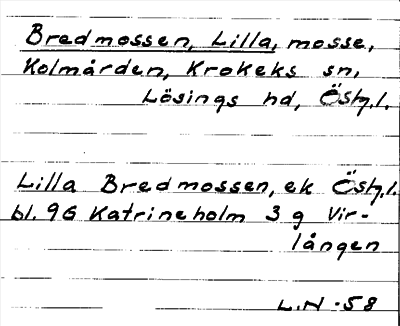 Bredmossen, Lilla, mosse,
Kolmården, Krokeks sn,
Lösings hd, Östg.l.
Lilla Bredmossen, ek Östg.l.
bl. 96 Katrineholm 3 g Vir-
lången
L.N -58